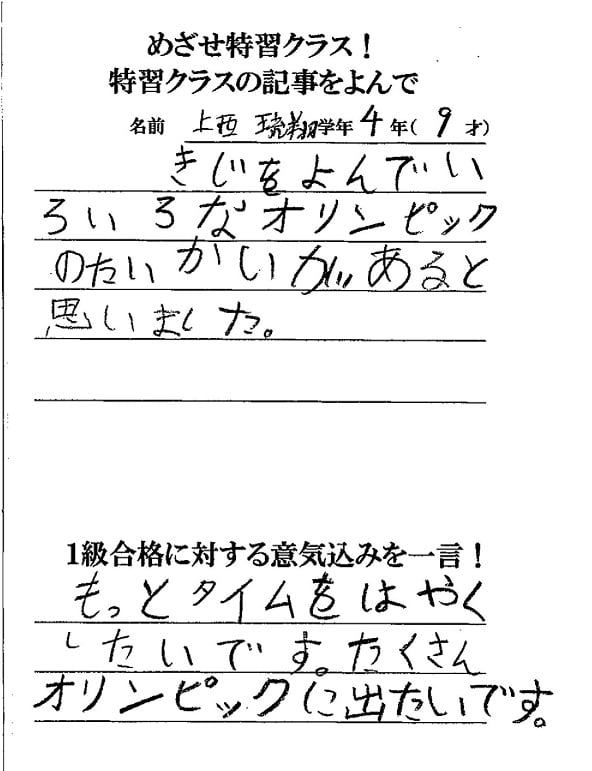 めざせ特習クラス！
特習クラスの記事をよんで
名前 上西 琉翔 学年 4 年( 9 才)
きじをよんでい
ろいろなオリンピック
のたいかいがあると
思いました。
1級合格に対する意気込みを一言！
もっとタイムをはやく
したいです。たくさん
オリンピックに出たいです。